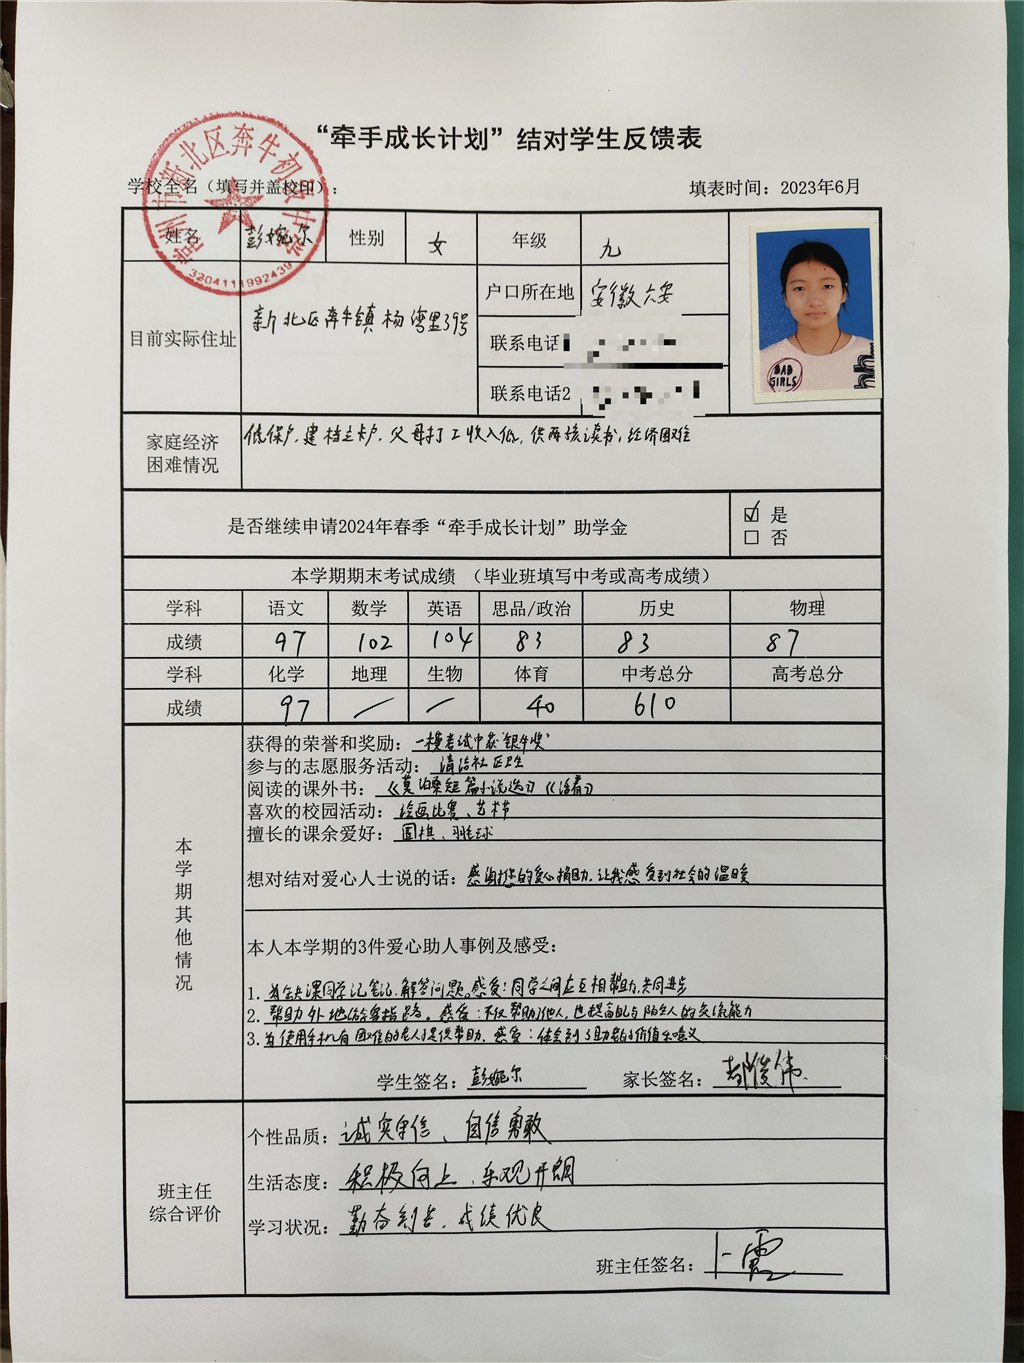 “牵手成长计划”结对学生反馈表
学校全名（填写并盖校印）：
填表时间：2023年6月
常州市新北区奔牛初级中学
3204111992439
姓名 彭婉尔 性别 女 年级 九
目前实际住址 新北区奔牛镇杨湾里39号
户口所在地 安徽六安
联系电话
联系电话2
BAD GIRLS
家庭经济困难情况 低保户，建档立卡户，父母打工收入低，供两孩读书，经济困难
是否继续申请2024年春季“牵手成长计划”助学金 ☑ 是
□ 否
本学期期末考试成绩 （毕业班填写中考或高考成绩）
学科 语文 数学 英语 思品/政治 历史 物理
成绩 97 102 104 83 83 87
学科 化学 地理 生物 体育 中考总分 高考总分
成绩 97 / / 40 610
本学期其他情况
获得的荣誉和奖励：一模考试中获“银牛奖”
参与的志愿服务活动：清洁社区卫生
阅读的课外书：《莫泊桑短篇小说选》《活着》
喜欢的校园活动：绘画比赛、艺术节
擅长的课余爱好：围棋、羽毛球
想对结对爱心人士说的话：感谢您的爱心捐助，让我感受到社会的温暖
本人本学期的3件爱心助人事例及感受：
1. 为缺课同学记笔记，解答问题。感受：同学之间应互相帮助，共同进步
2. 帮助外地游客指路。感受：不仅帮助他人，也提高自己与陌生人的交流能力
3. 为使用手机有困难的老人提供帮助。感受：体会到了助老的价值和意义
学生签名：彭婉尔 家长签名：
班主任综合评价
个性品质：诚实守信、自信勇敢
生活态度：积极向上、乐观开朗
学习状况：勤奋刻苦，成绩优良
班主任签名：卜霞